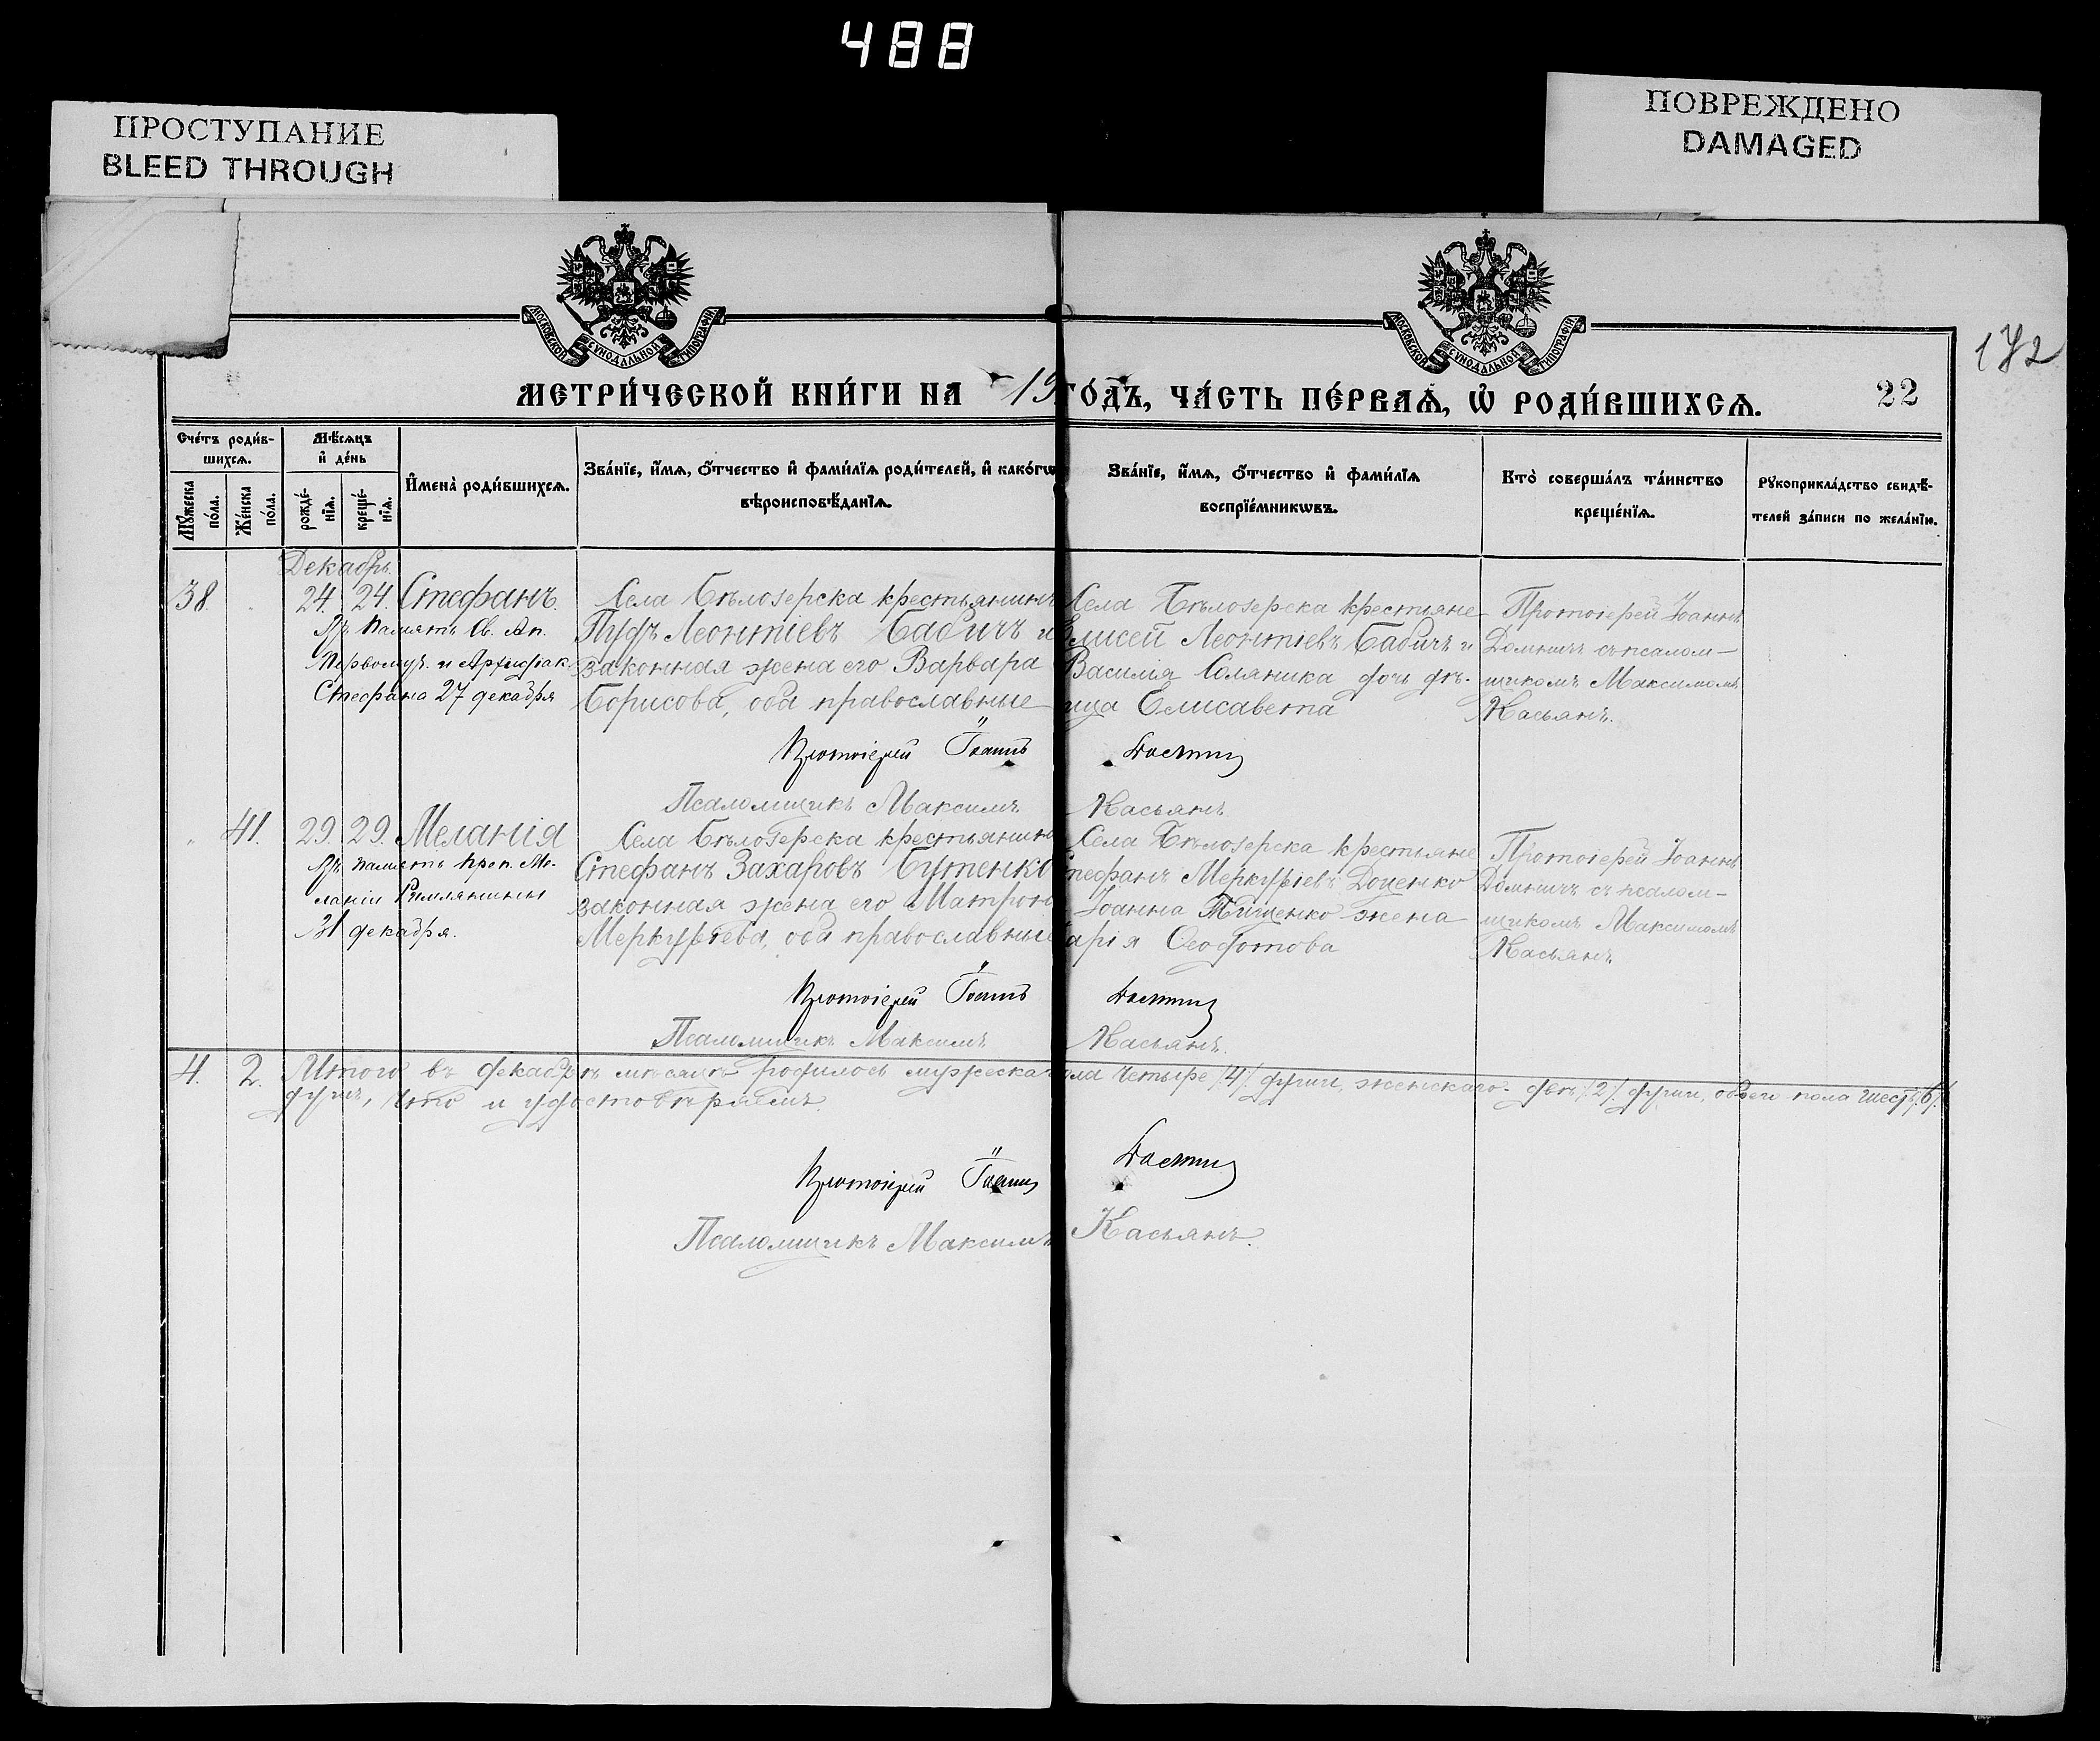 488
ПРОСТУПАНИЕ
BLEED THROUGH
ПОВРЕЖДЕНО
DAMAGED
МОСКОВСКОЙ СѴНОДАЛЬНОЙ ТИПОГРАФІИ
МОСКОВСКОЙ СѴНОДАЛЬНОЙ ТИПОГРАФІИ
172
МЕТРИ́ЧЕСКОЙ КНИ́ГИ НА 19 ГО́ДЪ, ЧА́СТЬ ПЕ́РВАѦ, Ѡ҆ РОДИ́ВШИХСѦ.
22
Сче́тъ роди́в-
шихсѧ.
Мꙋ́жеска по́ла.
Же́нска по́ла.
Мѣ́сѧцъ
и҆ де́нь
рожде́-
нїѧ.
креще́-
нїѧ.
И҆мена̀ роди́вшихсѧ.
Зва́нїе, и҆́мѧ, ѻ҆́тчество и҆ фами́лїѧ роди́телей, и҆ како́гѡ
вѣроисповѣ́данїѧ.
Зва́нїе, и҆́мѧ, ѻ҆́тчество и҆ фами́лїѧ
воспрїе́мникѡвъ.
Кто̀ соверша́лъ та́инство
креще́нїѧ.
Рꙋкоприкла́дство свидѣ́-
телей за́писи по жела́нїю.
Декабрь
38. 24. 24. Стефанъ.
Въ память Св. Ап.
Первомуч. и Архидіак.
Стефана 27 декабря
Села Бѣлозерска крестьянинъ
Пудъ Леонтіевъ Бабичъ и
законная жена его Варвара
Борисова, оба православные
Села Бѣлозерска крестьяне
Елисей Леонтіевъ Бабичъ и
Василія Соляника дочь дѣ-
ица Елисавета
Протоіерей Іоаннъ
съ псалом-
щикомъ Максимомъ
Касьянъ.
Протоіерей Іоаннъ
Псаломщикъ Максимъ Касьянъ
41. 29. 29. Меланія
Въ память преп. Ме-
ланіи Римлянины
31 декабря.
Села Бѣлозерска крестьянинъ
Стефанъ Захаровъ Бутенко
законная жена его Матрона
Меркуріева, оба православные
Села Бѣлозерска крестьяне
тефанъ Меркуріевъ Доценко
Іоанна Тищенко жена
арія Ѳеодотова
Протоіерей Іоаннъ
съ псалом-
щикомъ Максимомъ
Касьянъ.
Протоіерей Іоаннъ
Псаломщикъ Максимъ Касьянъ.
4. 2. Итого въ декабрѣ мѣсяцѣ родилось мужеска ола четыре /4/ души, женскаго - двѣ /2/ души, обоего пола шесть /6/
душъ, что и удостовѣряемъ.
Протоіерей Іоаннъ
Псаломщикъ Максимъ Касьянъ.